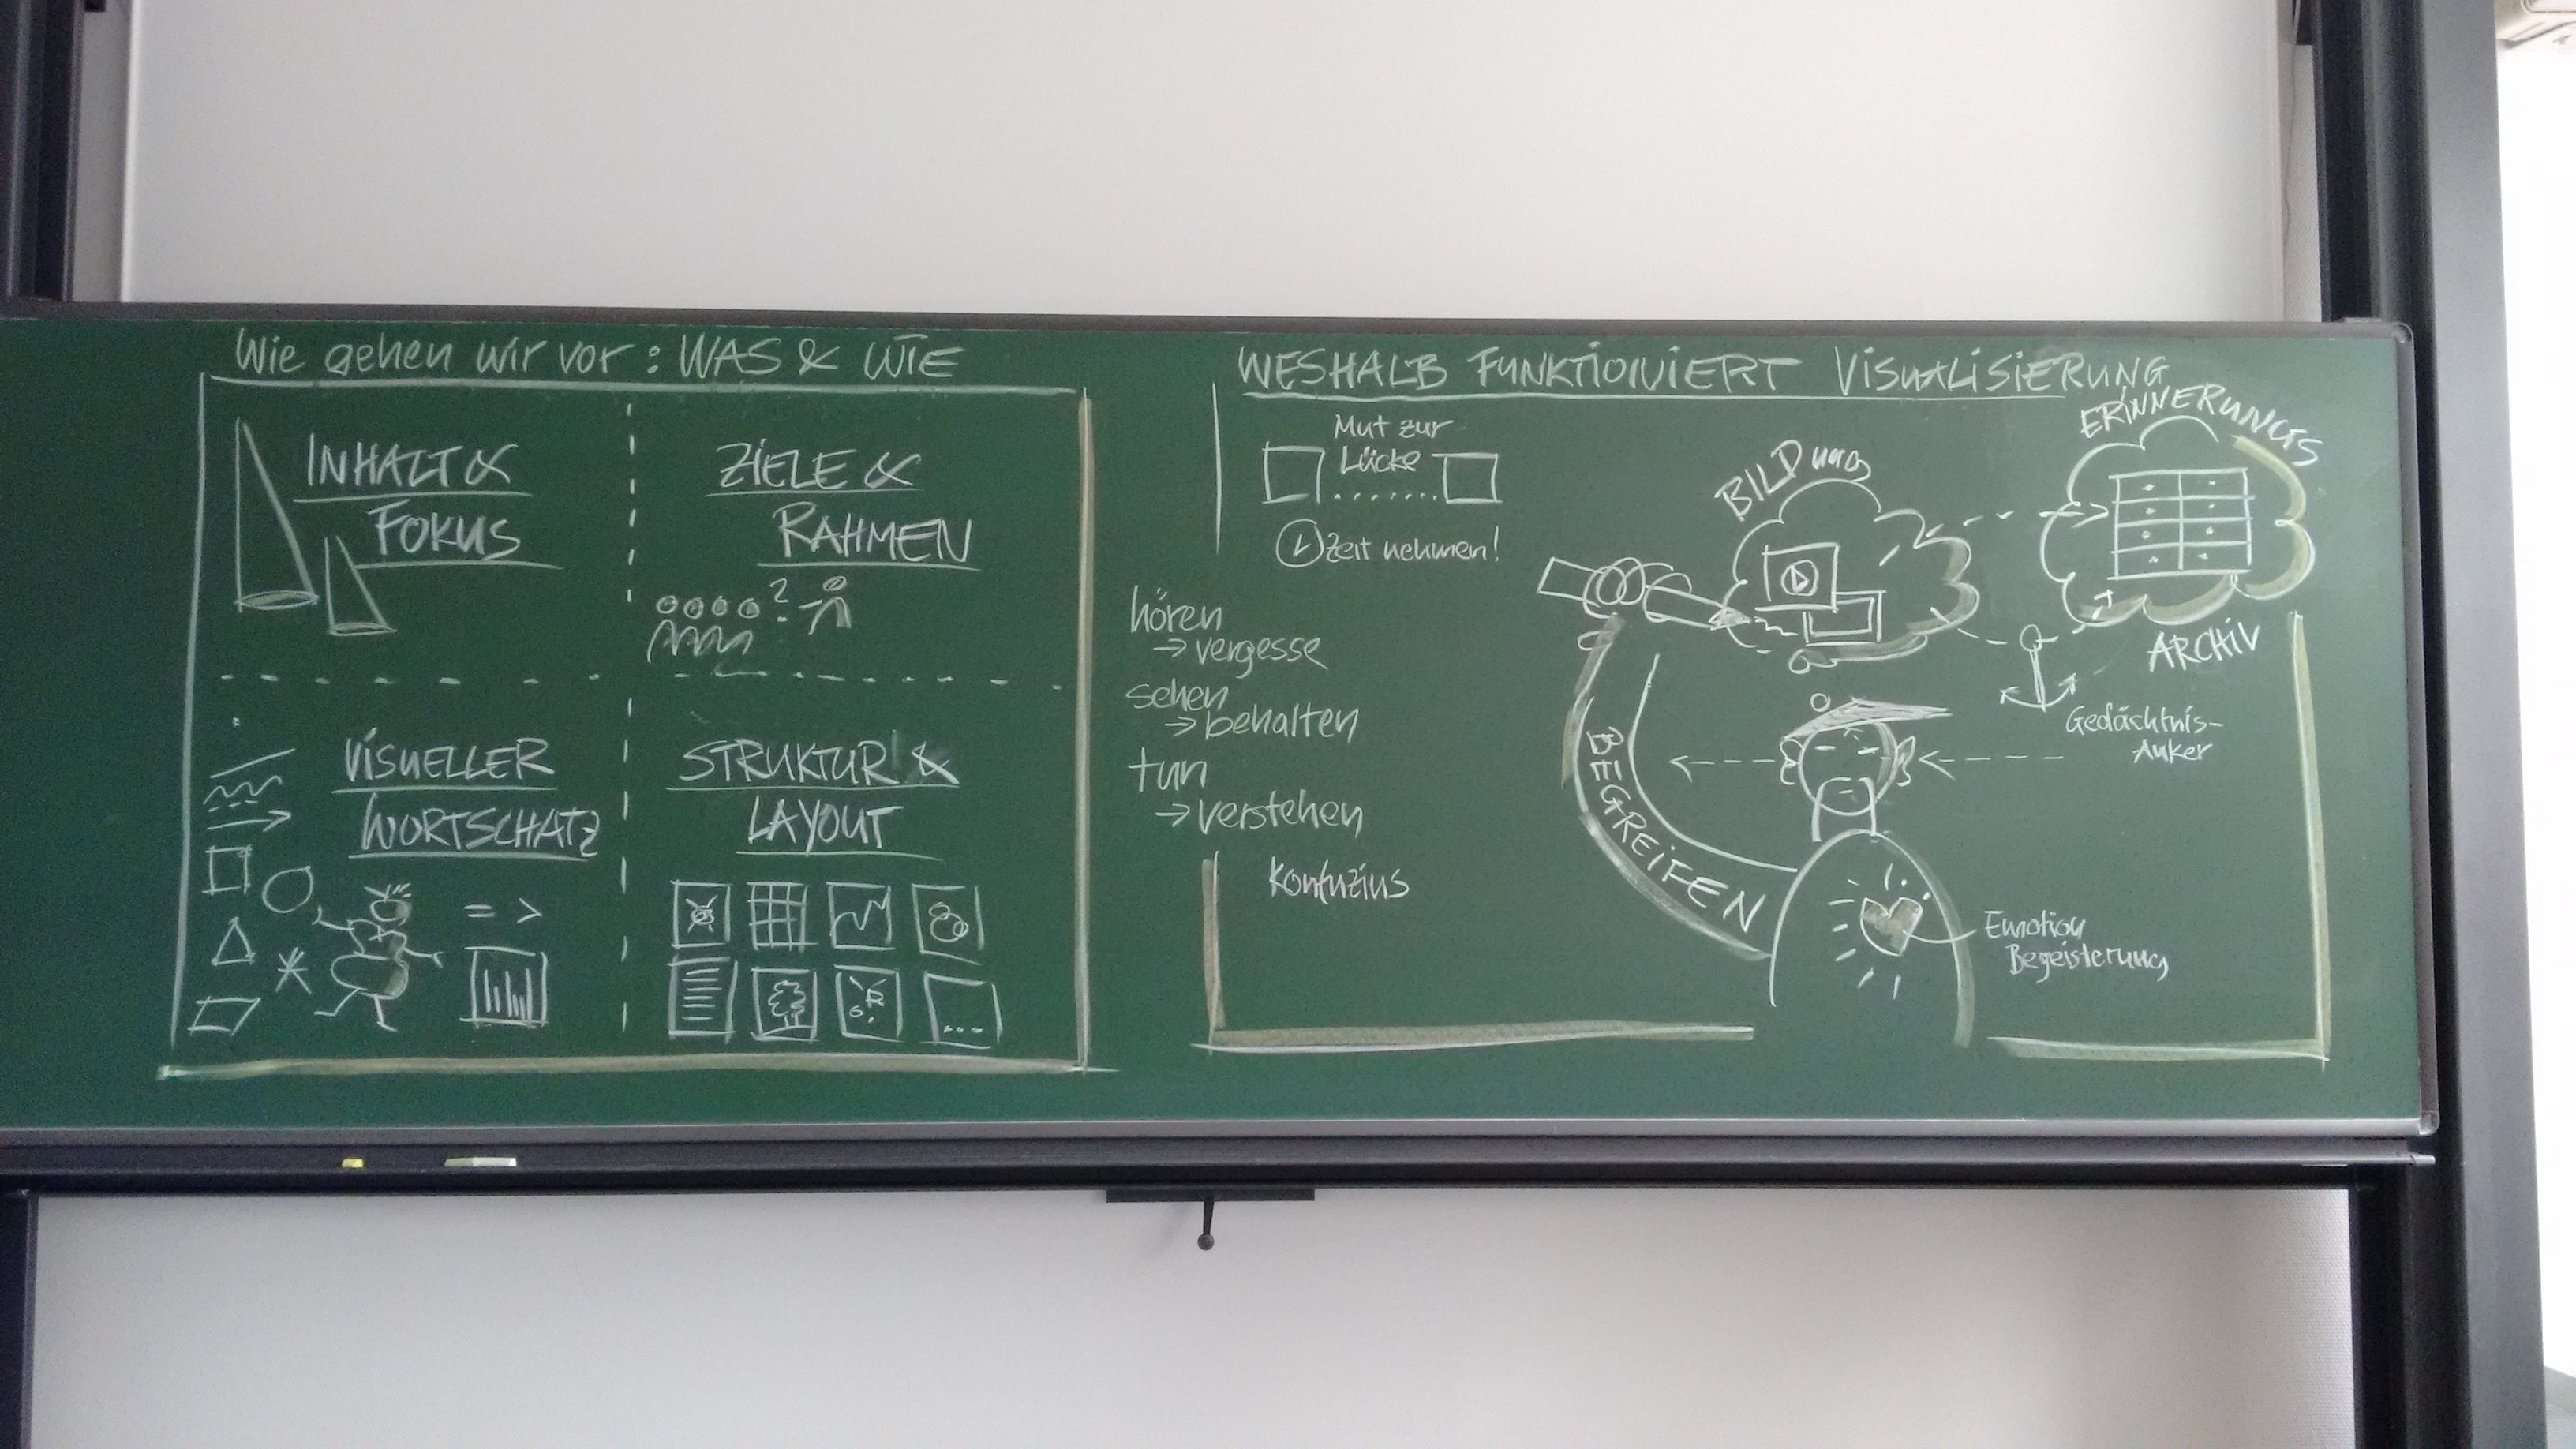 Wie gehen wir vor: WAS & WIE
INHALT &
FOKUS
ZIELE &
RAHMEN
?
VISUELLER
WORTSCHATZ
= >
STRUKTUR &
LAYOUT
...
WESHALB FUNKTIONIERT VISUALISIERUNG
Mut zur
Lücke
Zeit nehmen!
hören
→ vergesse
sehen
→ behalten
tun
→ verstehen
Konfuzius
BILDung
ERINNERUNGS
ARCHIV
Gedächtnis-
Anker
BEGREIFEN
Emotion
Begeisterung